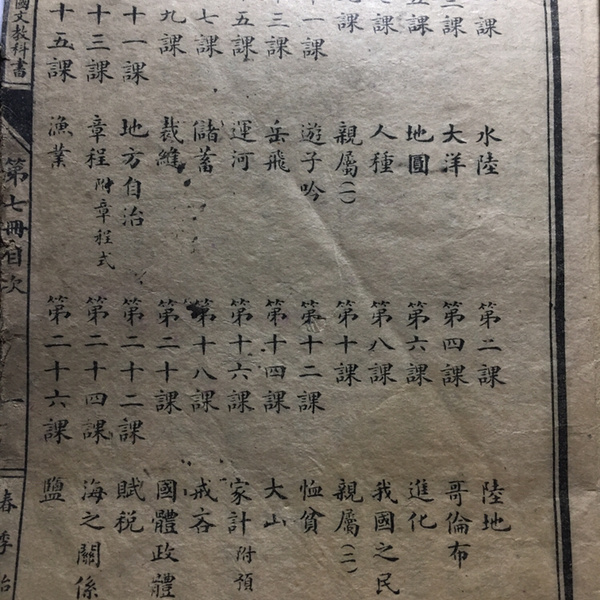 課 水陸 第二課 陸地
三課 大洋 第四課 哥倫布
五課 地圓 第六課 進化
課 人種 第八課 我國之民
課 親屬(一) 第十課 親屬(二)
一課 遊子吟 第十二課 恤貧
三課 岳飛 第十四課 大山
五課 運河 第十六課 家計附預
七課 儲蓄 第十八課 戒吝
九課 裁縫 第二十課 國體政體
十一課 地方自治 第二十二課 賦税
十三課 章程附章程式 第二十四課 海之關係
十五課 漁業 第二十六課 鹽
國文教科書 第七冊目次 一 春季始